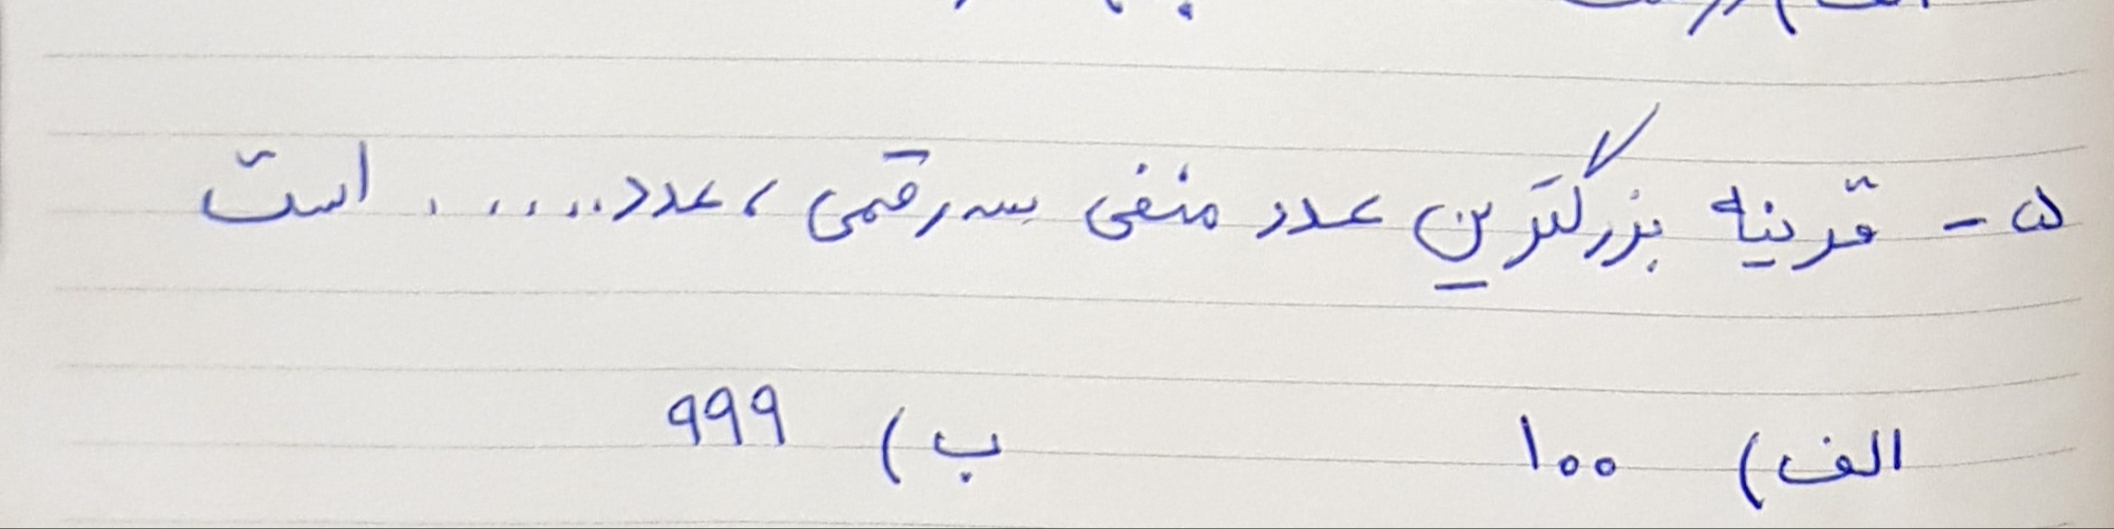 ۵- قرینه بزرگترین عدد منفی سه رقمی، عدد ....... است
الف) ۱۰۰ ب) ۹۹۹